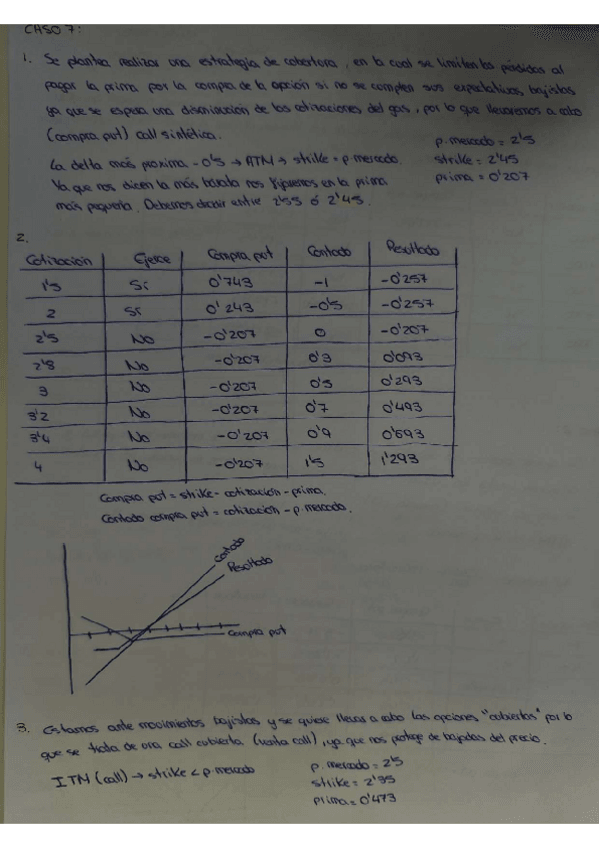 CASO 7:
1. Se plantea realizar una estrategia de cobertura, en la cual se limiten las pérdidas al
pagar la prima por la compra de la opción si no se cumplen sus expectativas bajistas
ya que se espera una disminución de las cotizaciones del gas, por lo que llevaremos a cabo
(compra put) call sintética.
p. mercado = 2'5
La delta más proxima -0'5 → ATM → strike = p. mercado.
strike = 2'45
Ya que nos dicen la más barata nos fijaremos en la prima
prima = 0'207
más pequeña. Debemos decidir entre 2'55 ó 2'45.
2.
Cotización Ejerce Compra put Contado Resultado
1'5 Sí 0'743 -1 -0'257
2 Sí 0'243 -0'5 -0'257
2'5 No -0'207 0 -0'207
2'8 No -0'207 0'3 0'093
3 No -0'207 0'5 0'293
3'2 No -0'207 0'7 0'493
3'4 No -0'207 0'9 0'693
4 No -0'207 1'5 1'293
Compra put = strike - cotización - prima.
Contado compra put = cotización - p. mercado.
Contado
Resultado
Compra put
3. Estamos ante movimientos bajistas y se quiere llevar a cabo las opciones "cubiertas" por lo
que se trata de una call cubierta (venta call), ya que nos protege de bajadas del precio.
ITM (call) → strike < p. mercado
p mercado = 2'5
strike = 2'95
prima = 0'473